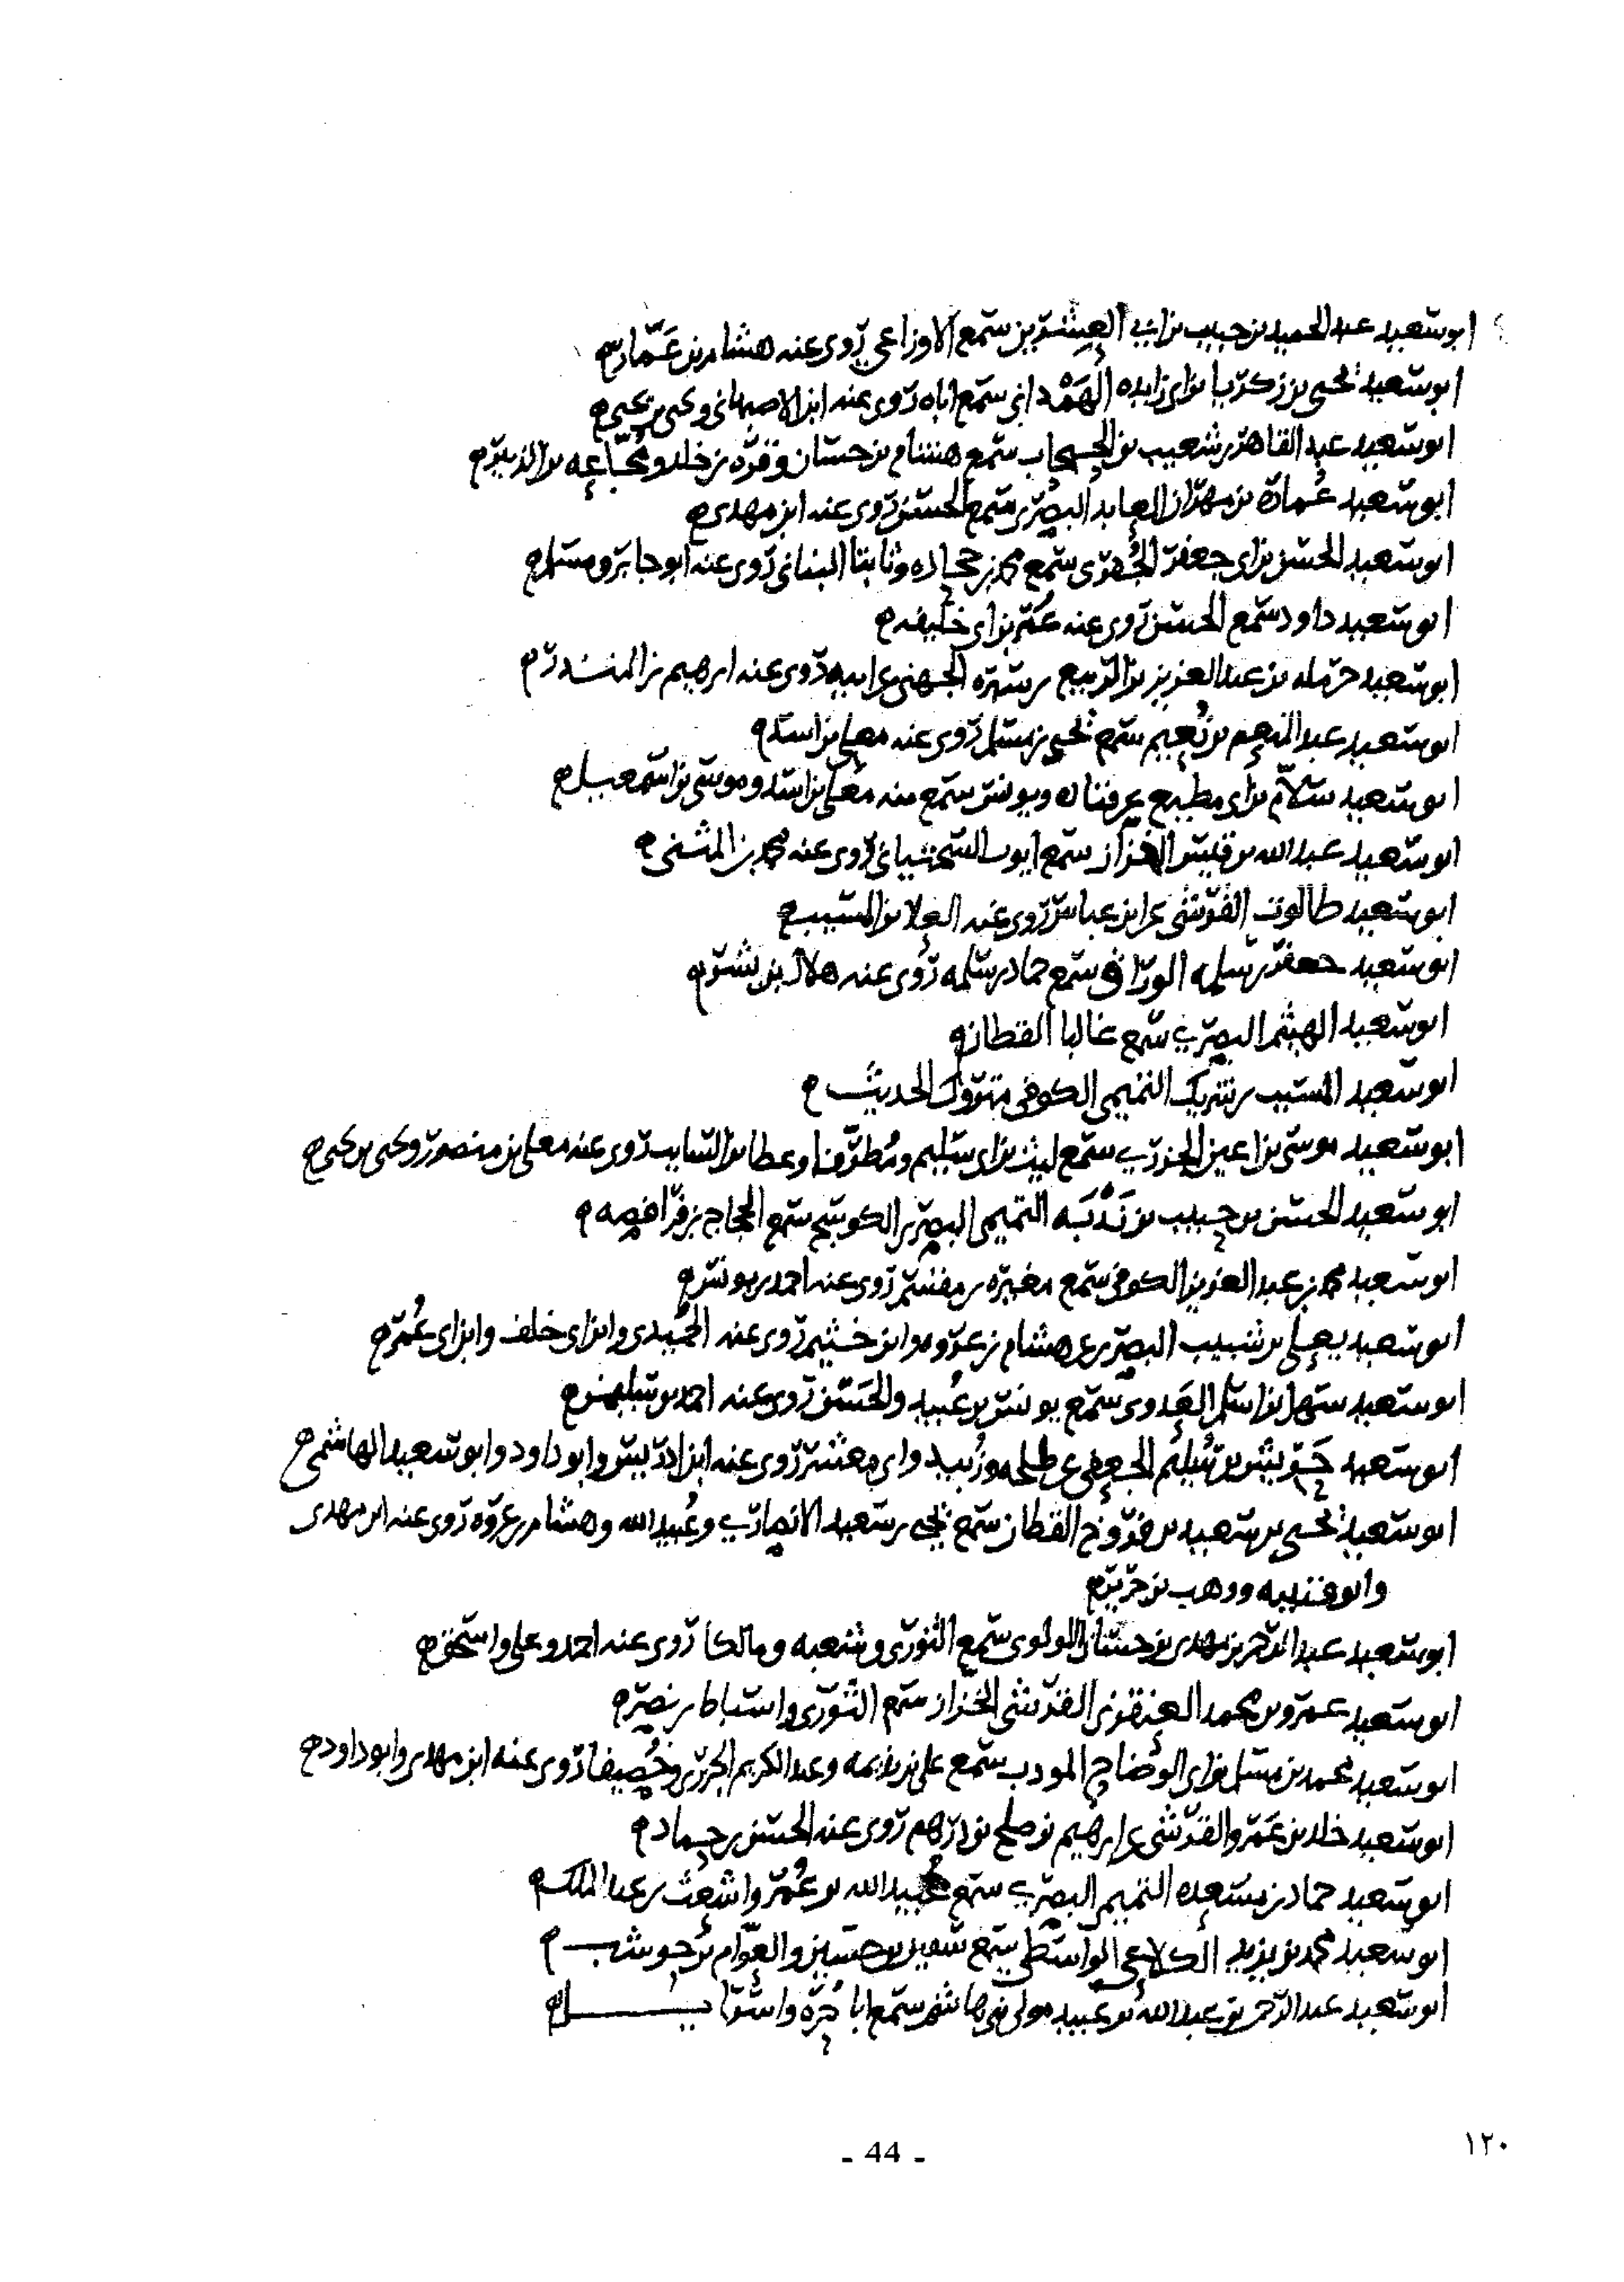 ابو سعيد عبد الحميد بن حبيب بن ابي العشرين سمع الاوزاعي روى عنه هشام بن عمار
ابو سعيد يحيى بن زكريا بن ابي زايده الهمداني سمع اباه روى عنه ابن الاصبهاني ويحيى بن يحيى
ابو سعيد عبد القاهر بن شعيب بن الحبحاب سمع هشام بن حسان وقره بن خلد ومجاعه بن الزبير
ابو سعيد عماره بن مهران العابد البصري سمع الحسن روى عنه ابن مهدي
ابو سعيد الحسن بن ابي جعفر الجفري سمع محمد بن جحاده وثابتا البناني روى عنه ابو جابر ومسلم
ابو سعيد داود سمع الحسن روى عنه عمر بن ابي خليفه
ابو سعيد حرمله بن عبد العزيز بن الربيع بن سبره الجهني عن ابيه روى عنه ابرهيم بن المنذر
ابو سعيد عبد المنعم بن نعيم سمع يحيى بن مسلم روى عنه معلى بن اسد
ابو سعيد سلام بن ابي مطيع عن قتاده ويونس سمع منه معلى بن اسد وموسى بن اسمعيل
ابو سعيد عبد الله بن قيس الخزاز سمع ايوب السختياني روى عنه محمد بن المثنى
ابو سعيد طالوت القرشي عن ابن عباس روى عنه العلا بن المسيب
ابو سعيد جعفر بن سلمه الوراق سمع حماد بن سلمه روى عنه هلال بن بشر
ابو سعيد الهيثم البصري سمع غالبا القطان
ابو سعيد المسيب بن شريك التميمي الكوفي متروك الحديث
ابو سعيد موسى بن اعين الجزري سمع ليث بن ابي سليم ومطرفا وعطا بن السايب روى عنه معلى بن منصور ويحيى بن يحيى
ابو سعيد الحسن بن حبيب بن ندبه التميمي البصري الكوسج سمع الحجاج بن فرافصه
ابو سعيد محمد بن عبد العزيز الكوفي سمع مغيره بن مقسم روى عنه احمد بن يونس
ابو سعيد يعلى بن شبيب البصري عن هشام بن عروه وابن خثيم روى عنه الحميدي وابن ابي خلف وابن ابي عمر
ابو سعيد سهل بن اسلم العدوي سمع يونس بن عبيد والحسن روى عنه احمد بن
ابو سعيد حريش بن سليم الجعفي عن طلحه وزبيد وابي معشر روى عنه ابن ادريس وابو داود وابو سعيد الهاشمي
ابو سعيد يحيى بن سعيد بن فروخ القطان سمع يحيى بن سعيد الانصاري وعبيد الله وهشام بن عروه روى عنه ابن مهدي
وابو قتيبه ووهب بن جرير
ابو سعيد عبد الرحمن بن مهدي بن حسان اللولوي سمع الثوري وشعبه ومالكا روى عنه احمد وعلي واسحق
ابو سعيد عمرو بن محمد العنقزي القرشي الخزاز سمع الثوري واسباط بن نصر
ابو سعيد محمد بن مسلم بن ابي الوضاح المودب سمع علي بن بذيمه وعبد الكريم الجزري وخصيفا روى عنه ابن مهدي وابو داود
ابو سعيد خلد بن عمرو القرشي عن ابرهيم بن صلح بن درهم روى عنه الحسن بن حماد
ابو سعيد حماد بن مسعده التميمي البصري سمع عبيد الله بن عمر واشعث بن عبد الملك
ابو سعيد محمد بن يزيد الكلاعي الواسطي سمع سفين بن حسين والعوام بن حوشب
ابو سعيد عبد الرحمن بن عبد الله بن عبيد مولى بني هاشم سمع ابا حره واسرايل
- 44 -
١٢٠